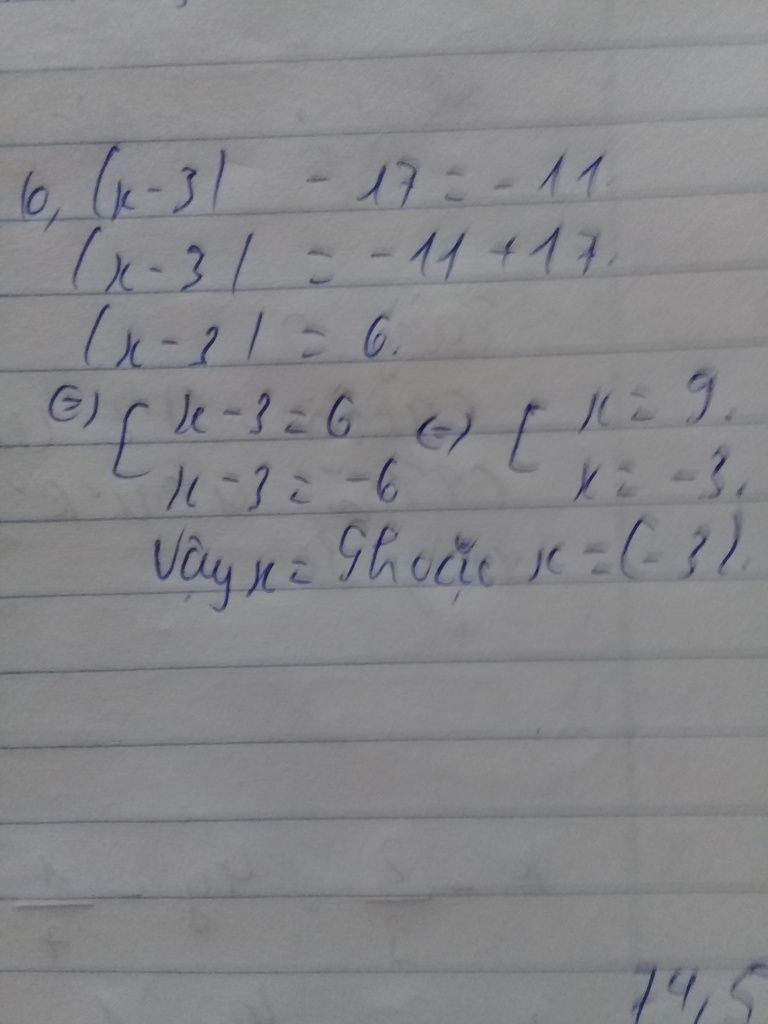 b, |x-3| - 17 = -11.
|x-3| = -11 + 17.
|x-3| = 6.
(=) [ x-3 = 6 (=) [ x = 9.
x-3 = -6 x = -3.
Vậy x = 9 hoặc x = (-3).
74,5